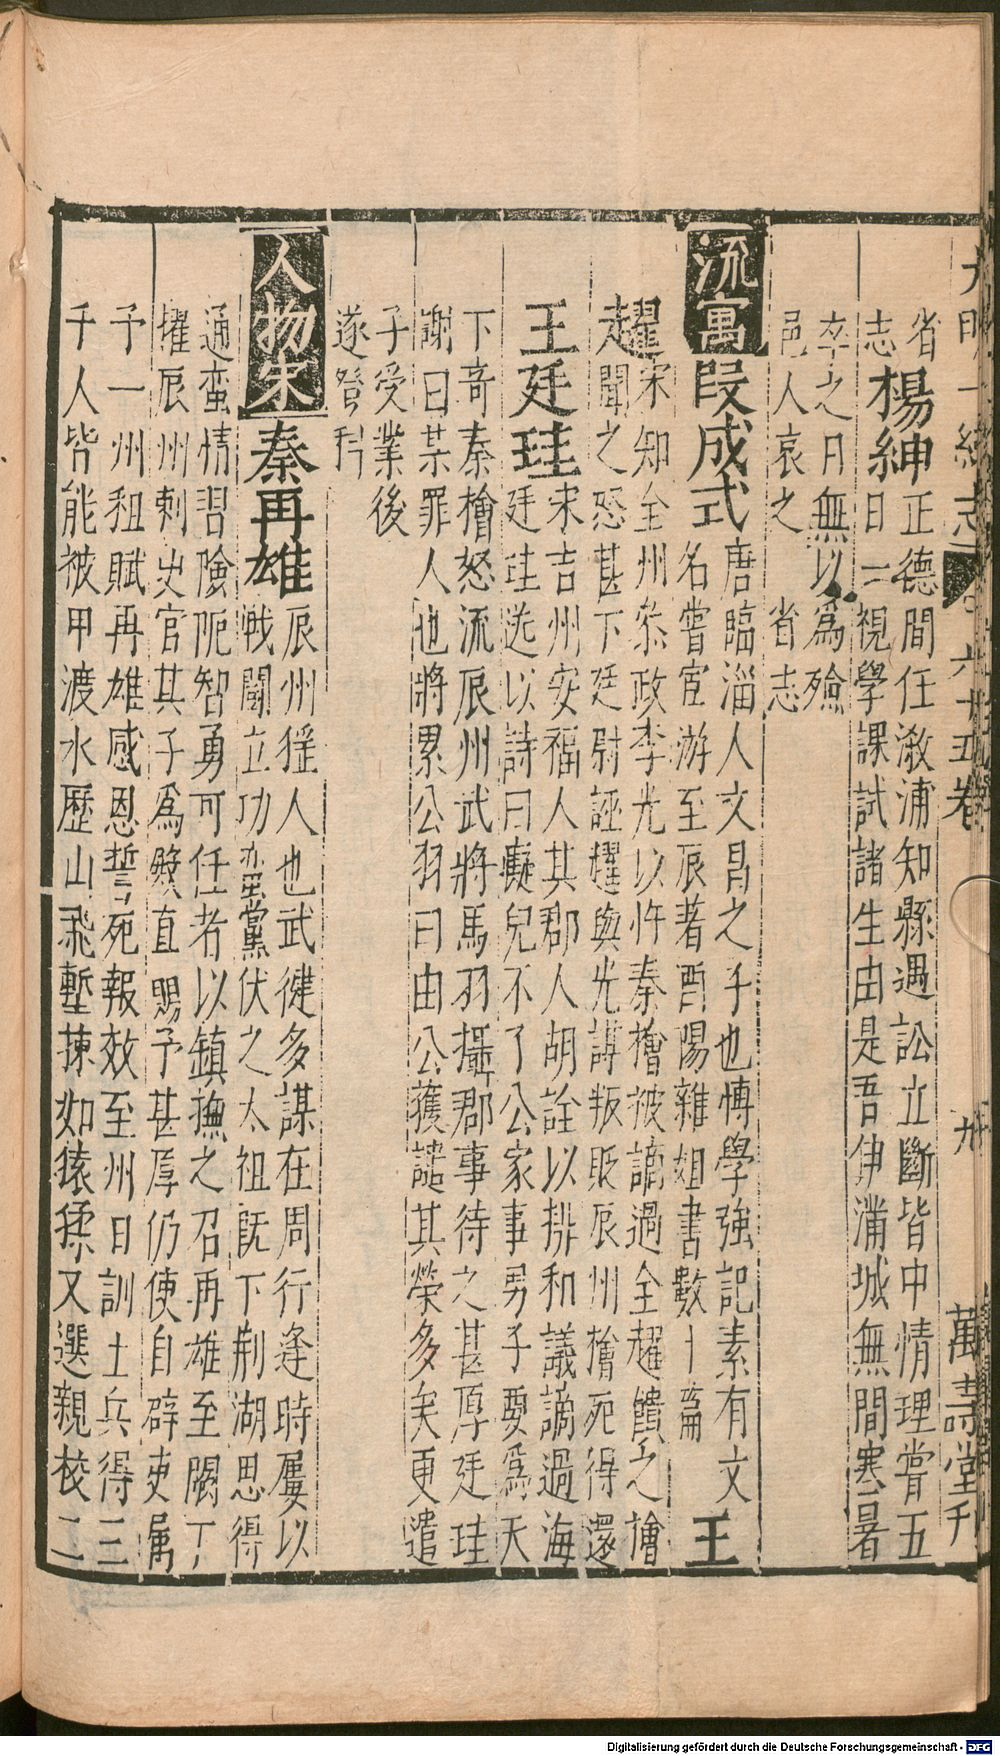 大明一統志 六十五卷 九 萬壽堂刊
省志 楊紳 正德間任漵浦知縣遇訟立斷皆中情理嘗五
日一視學課試諸生由是吾伊滿城無間寒暑
卒之日無以爲殮
邑人哀之 省志
流寓 段成式 唐臨淄人文昌之子也博學強記素有文
名嘗宦游至辰著酉陽雜俎書數十篇 王
趯 宋知全州叅政李光以忤秦檜被謫過全趯饋之檜
聞之怒甚下廷尉誣趯與光謗叛貶辰州檜死得還
王廷珪 宋吉州安福人其郡人胡詮以排和議謫過海
廷珪送以詩曰癡兒不了公家事男子要爲天
下奇秦檜怒流辰州武將馬羽攝郡事待之甚厚廷珪
謝曰某罪人也將累公羽曰由公獲譴其榮多矣更遣
子受業後
遂登科
人物宋 秦再雄 辰州猺人也武健多謀在周行逢時屢以
戰鬬立功蛮黨伏之太祖旣下荆湖思得
通蛮情習險阨智勇可任者以鎮撫之召再雄至闕丁
擢辰州刺史官其子爲殿直賜予甚厚仍使自辟吏属
予一州租賦再雄感恩誓死報效至州日訓土兵得三
千人皆能被甲渡水歷山飛塹捷如猿猱又選親校二
Digitalisierung gefördert durch die Deutsche Forschungsgemeinschaft - DFG